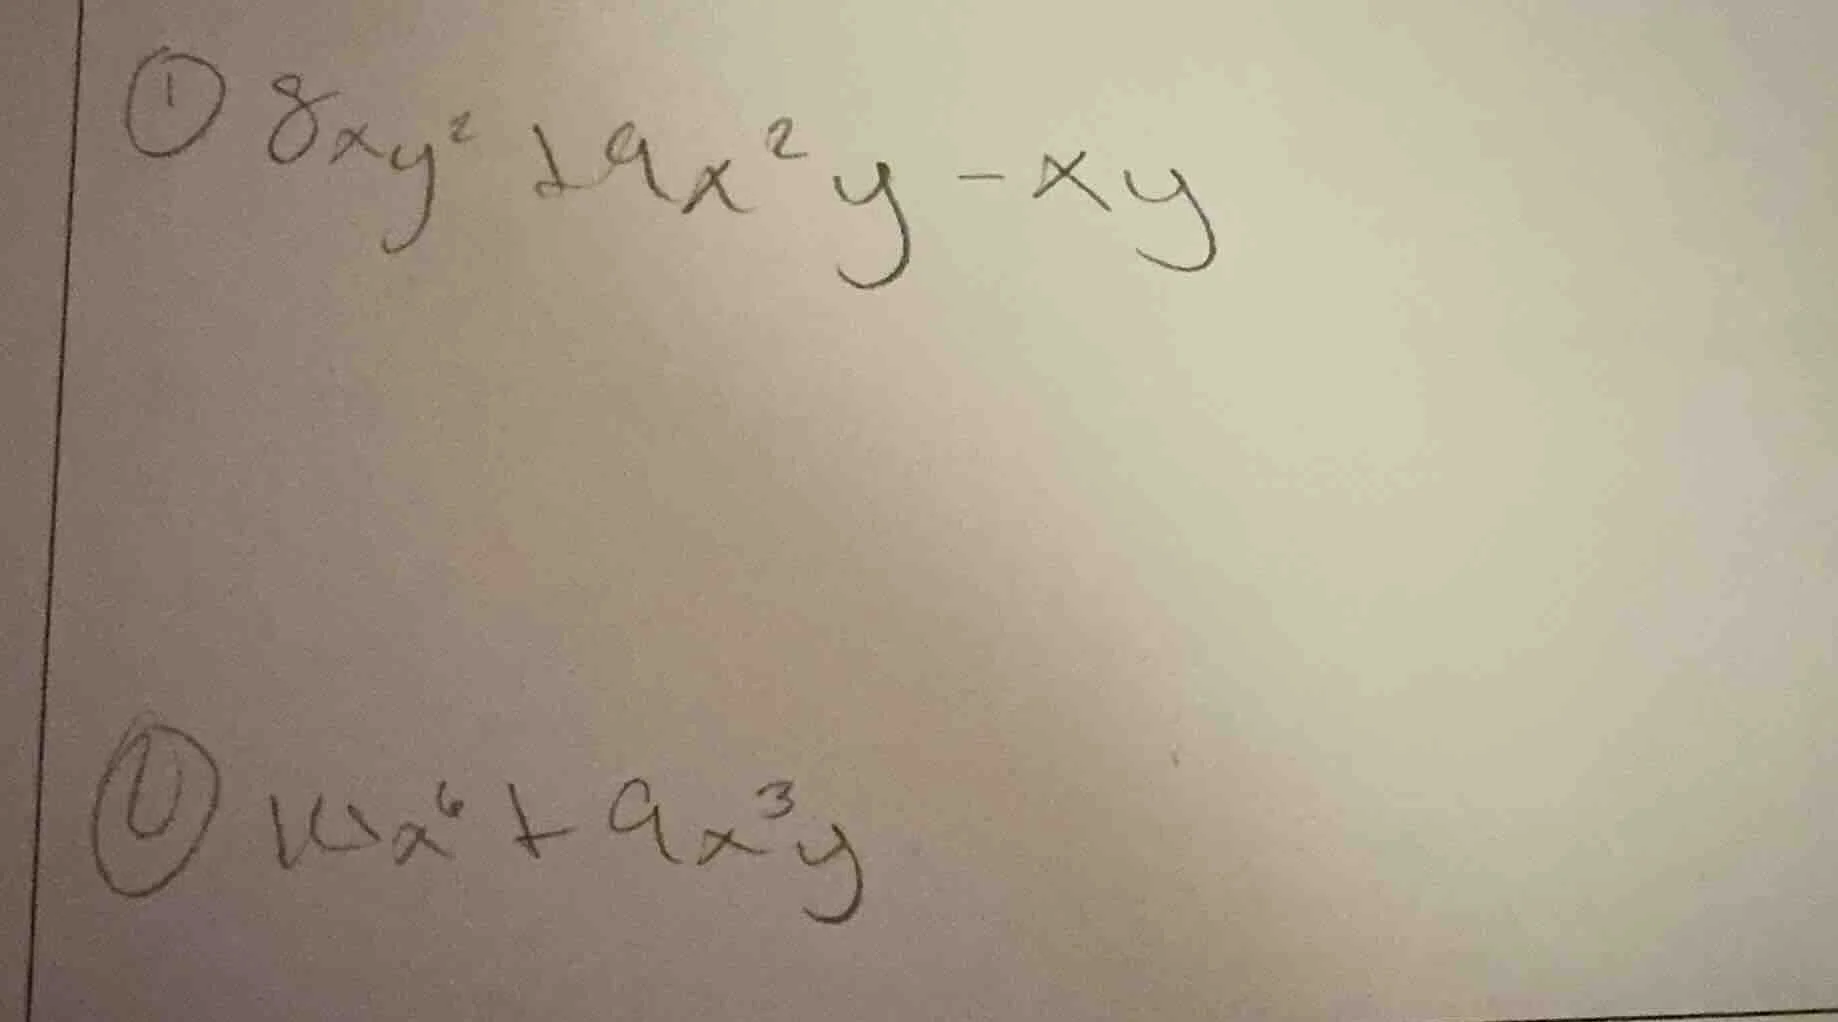 ① 8xy² + 9x²y - xy
② 10x⁶ + 9x³y